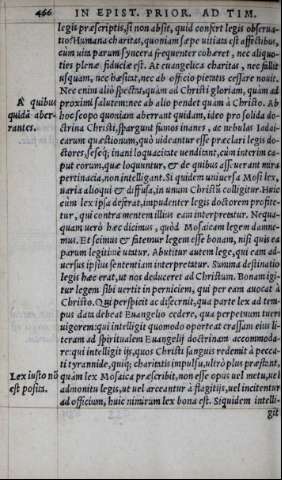 466 IN EPIST. PRIOR. AD TIM.
legis præscriptis, si non absit, quid confert legis obserua-
tio? Humana charitas, quoniam sæpe uitiata est affectibus,
cùm uix parum syncera frequenter cohæret, nec aliquo-
ties plenæ fiduciæ est. At euangelica charitas, nec fallit
usquam, nec hæsitat, nec ab officio pietatis cessare nouit.
Nec enim aliò spectat, quàm ad Christi gloriam, quàm ad
A quibus proximi salutem: nec ab alio pendet quàm à Christo. Ab
quidā aber- hoc scopo quoniam aberrant quidam, ideo pro solida do-
rantes. ctrina Christi, spargunt fumos inanes, ac nebulas Iudai-
carum quæstionum, quò uideantur esse præclari legis do-
ctores, seseq; inani loquacitate uenditant, cùm interim ca-
put eorum, quæ loquuntur, & de quibus asseuerant mira
pertinacia, non intelligant. Si quidem uniuersa Mosi lex,
uaria alioqui & diffusa, in unum Christū colligitur. Huic
cùm lex ipsa deserat, impudenter legis doctorem profite-
tur, qui contra mentem illius eam interpretetur. Nequa-
quam uerò hæc dicimus, quòd Mosaicam legem damne-
mus. Et scimus & fatemur legem esse bonam, nisi quis ea
parum legitimè utatur. Abutitur autem lege, qui eam ad-
uersus ipsius sententiam interpretatur. Summa destinatio
legis hæc erat, ut nos deduceret ad Christum. Bonam igi-
tur legem sibi uertit in perniciem, qui per eam auocat à
Christo. Qui perspicit ac discernit, qua parte lex ad tem-
pus data debeat Euangelio cedere, qua perpetuum tueri
uigorem: qui intelligit quomodo oporteat crassam eius li-
teram ad spiritualem Euangelij doctrinam accommoda-
re: qui intelligit ijs, quos Christi sanguis redemit à pecca-
ti tyrannide, quiq; charitatis impulsu, ultrò plus præstant,
Lex iusto nō quàm lex Mosaica præscribit, non esse opus uel metu, uel
est posita. admonitu legis, ut uel arceantur à flagitijs, uel incitentur
ad officium, huic nimirum lex bona est. Siquidem intelli-
git